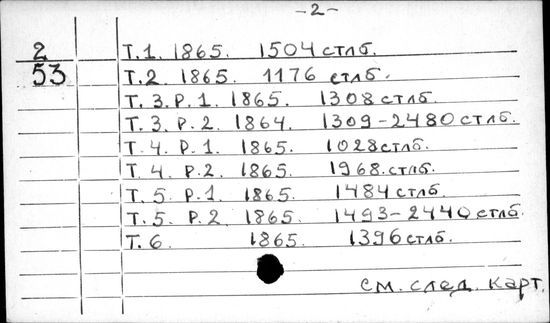 -2-
2 Т.1. 1865. 1504 стлб.
53 Т.2 1865. 1176 стлб.
Т. 3. Р. 1. 1865. 1308 стлб.
Т. 3. Р. 2. 1864. 1309-2480 стлб.
Т. 4. Р. 1. 1865. 1028 стлб.
Т. 4. Р. 2. 1865. 1968. стлб.
Т. 5. Р. 1. 1865. 1484 стлб.
Т. 5. Р. 2. 1865. 1493-2440 стлб.
Т. 6. 1865. 1396 стлб.
см. след. карт.